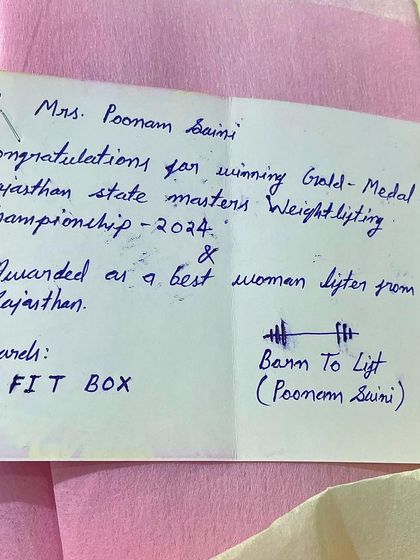 Mrs. Poonam Saini
ongratulations for winning Gold-Medal
ajasthan state masters Weightlifting
hampionship - 2024.
&
Awarded as a best woman lifter from
Rajasthan.
ards:
FIT BOX
Born To Lift
(Poonam Saini)